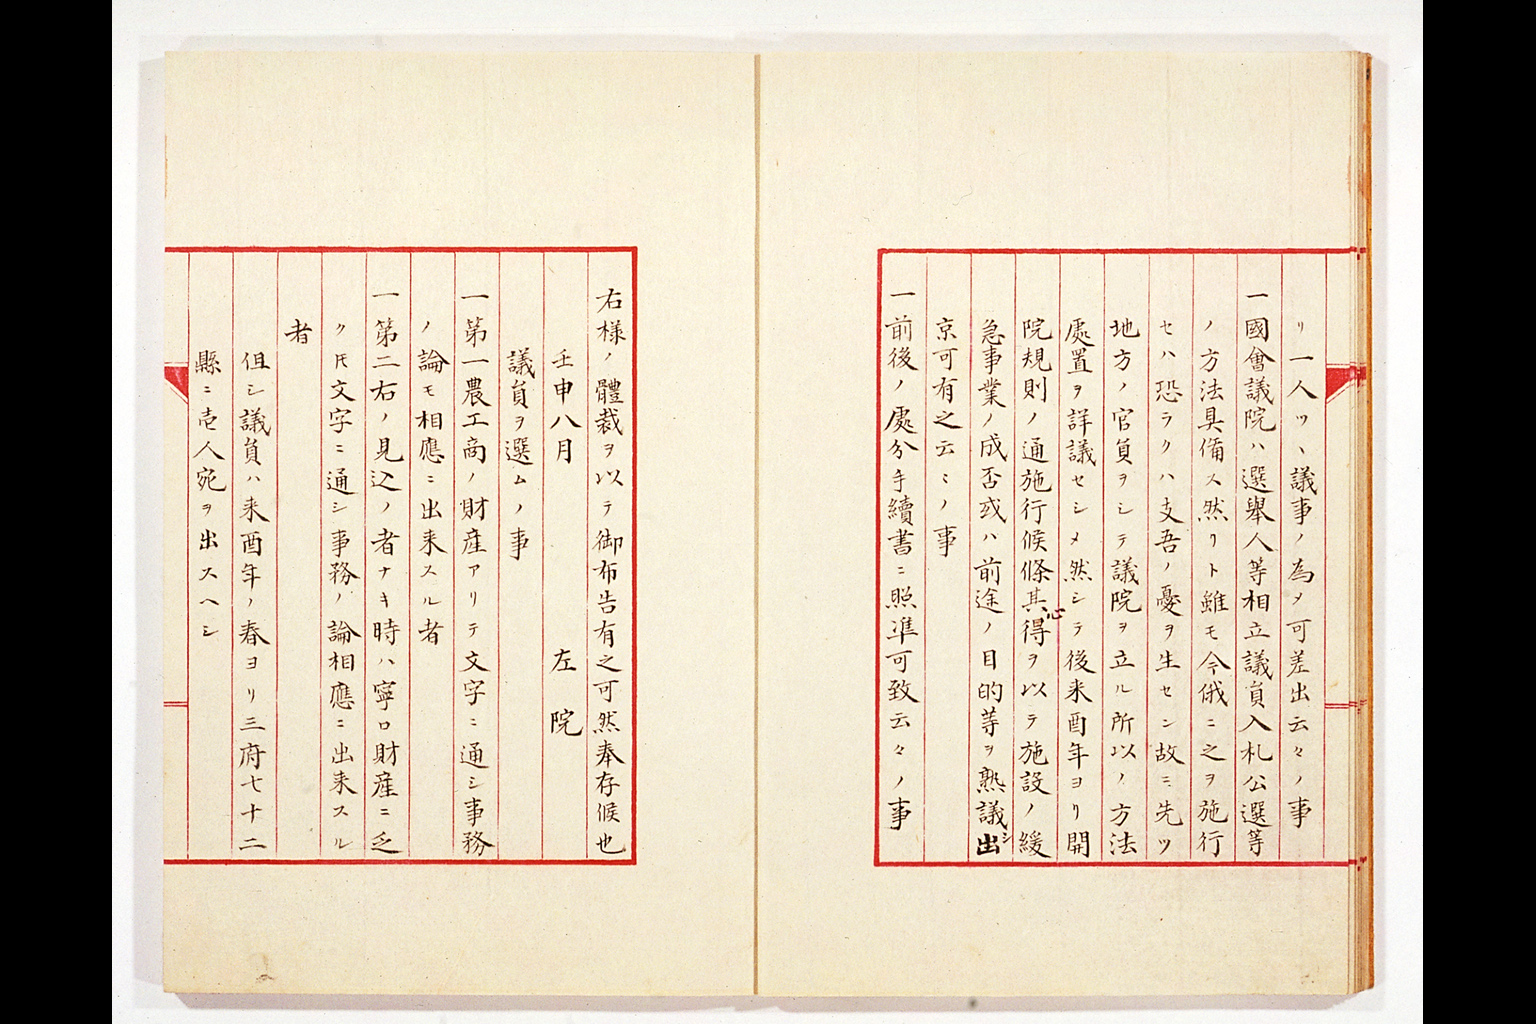 リ一人ツヽ議事ノ為メ可差出云々ノ事
一國會議院ハ選舉人等相立議員入札公選等
ノ方法具備ス然リト雖モ今俄ニ之ヲ施行
セハ恐ラクハ支吾ノ憂ヲ生セン故ニ先ツ
地方ノ官員ヲシテ議院ヲ立ル所以ノ方法
處置ヲ詳議セシメ然シテ後来酉年ヨリ開
院規則ノ通施行候條其心得ヲ以テ施設ノ緩
急事業ノ成否或ハ前途ノ目的等ヲ熟議シ出
京可有之云々ノ事
一前後ノ處分手續書ニ照準可致云々ノ事
右様ノ體裁ヲ以テ御布告有之可然奉存候也
壬申八月 左院
議員ヲ選ムノ事
一第一農工商ノ財産アリテ文字ニ通シ事務
ノ論モ相應ニ出来スル者
一第二右ノ見込ノ者ナキ時ハ寧ロ財産ニ乏
ク圧文字ニ通シ事務ノ論相應ニ出来スル
者
但シ議員ハ来酉年ノ春ヨリ三府七十二
縣ニ壱人宛ヲ出スヘシ